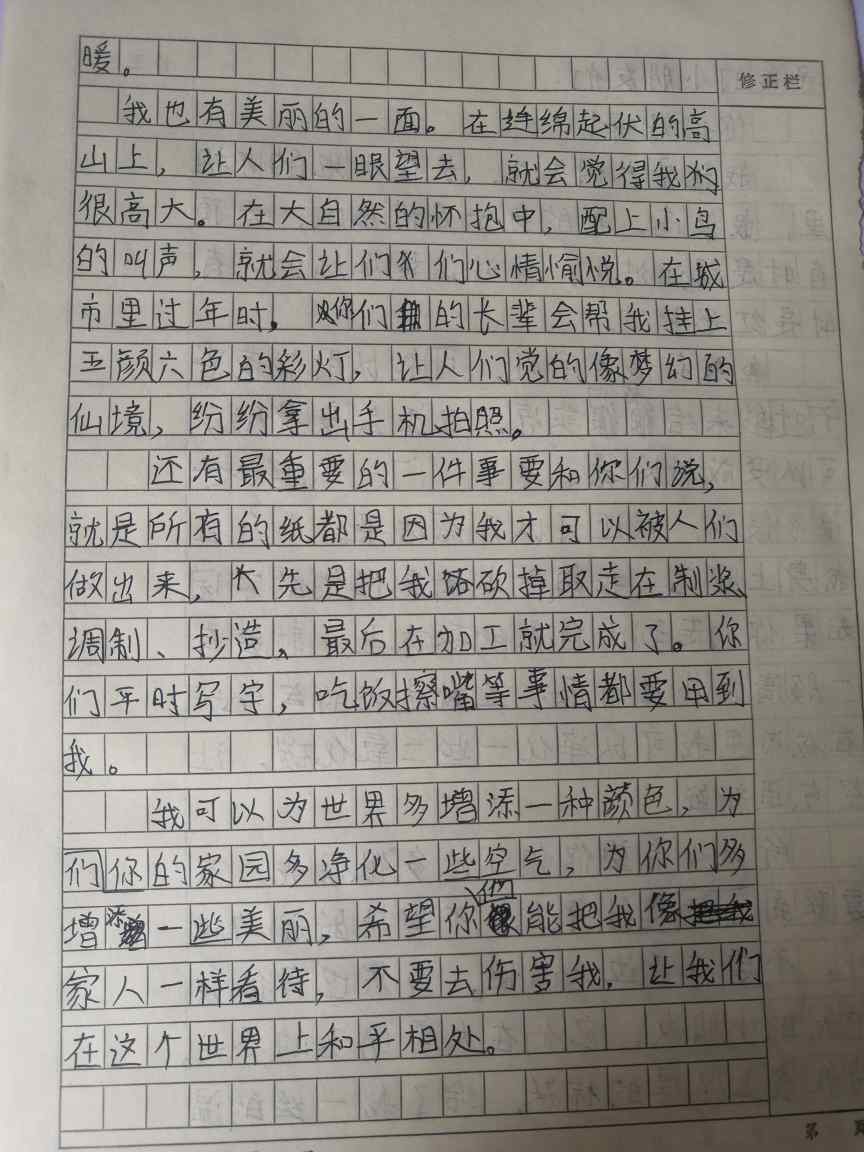 暖。
修正栏
我也有美丽的一面。在连绵起伏的高
山上，让人们一眼望去，就会觉得我们
很高大。在大自然的怀抱中，配上小鸟
的叫声，就会让们们心情愉悦。在城
市里过年时，你们的长辈会帮我挂上
五颜六色的彩灯，让人们觉的像梦幻的
仙境，纷纷拿出手机拍照。
还有最重要的一件事要和你们说，
就是所有的纸都是因为我才可以被人们
做出来，大先是把我砍掉取走在制浆、
调制、抄造、最后在加工就完成了。你
们平时写字，吃饭擦嘴等事情都要用到
我。
我可以为世界多增添一种颜色，为
们你的家园多净化一些空气，为你们多
增添一些美丽，希望你们能把我像
家人一样看待，不要去伤害我，让我们
在这个世界上和平相处。
第 页